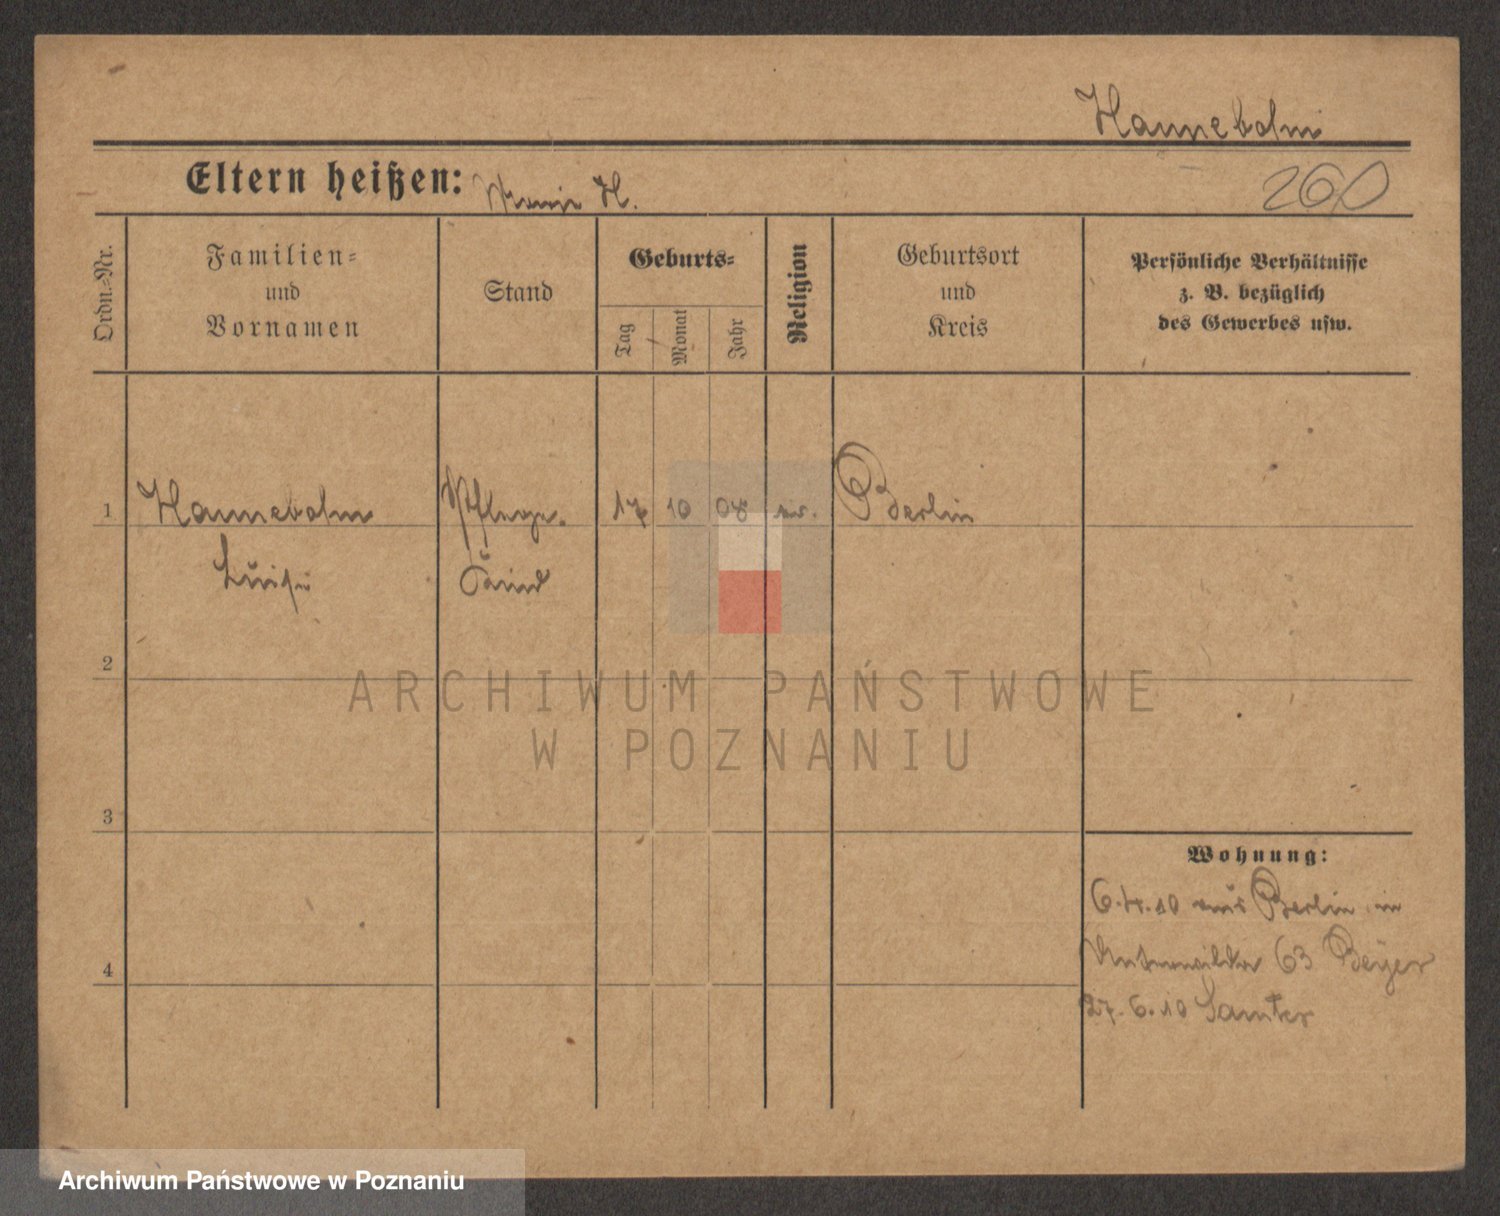 Hannebohm
Eltern heißen: H.
260
Ordn.-Nr.
Familien-
und
Vornamen
Stand
Geburts-
Tag
Monat
Jahr
Religion
Geburtsort
und
Kreis
Persönliche Verhältnisse
z. B. bezüglich
des Gewerbes usw.
1 Hannebohm Pflege- 17 10 08 ev. Berlin
Luise kind
2
3
4
Wohnung:
6.4.10 aus Berlin in
Unterwilda 63 Beyer
27.6.10 Samter
ARCHIWUM PAŃSTWOWE
W POZNANIU
Archiwum Państwowe w Poznaniu